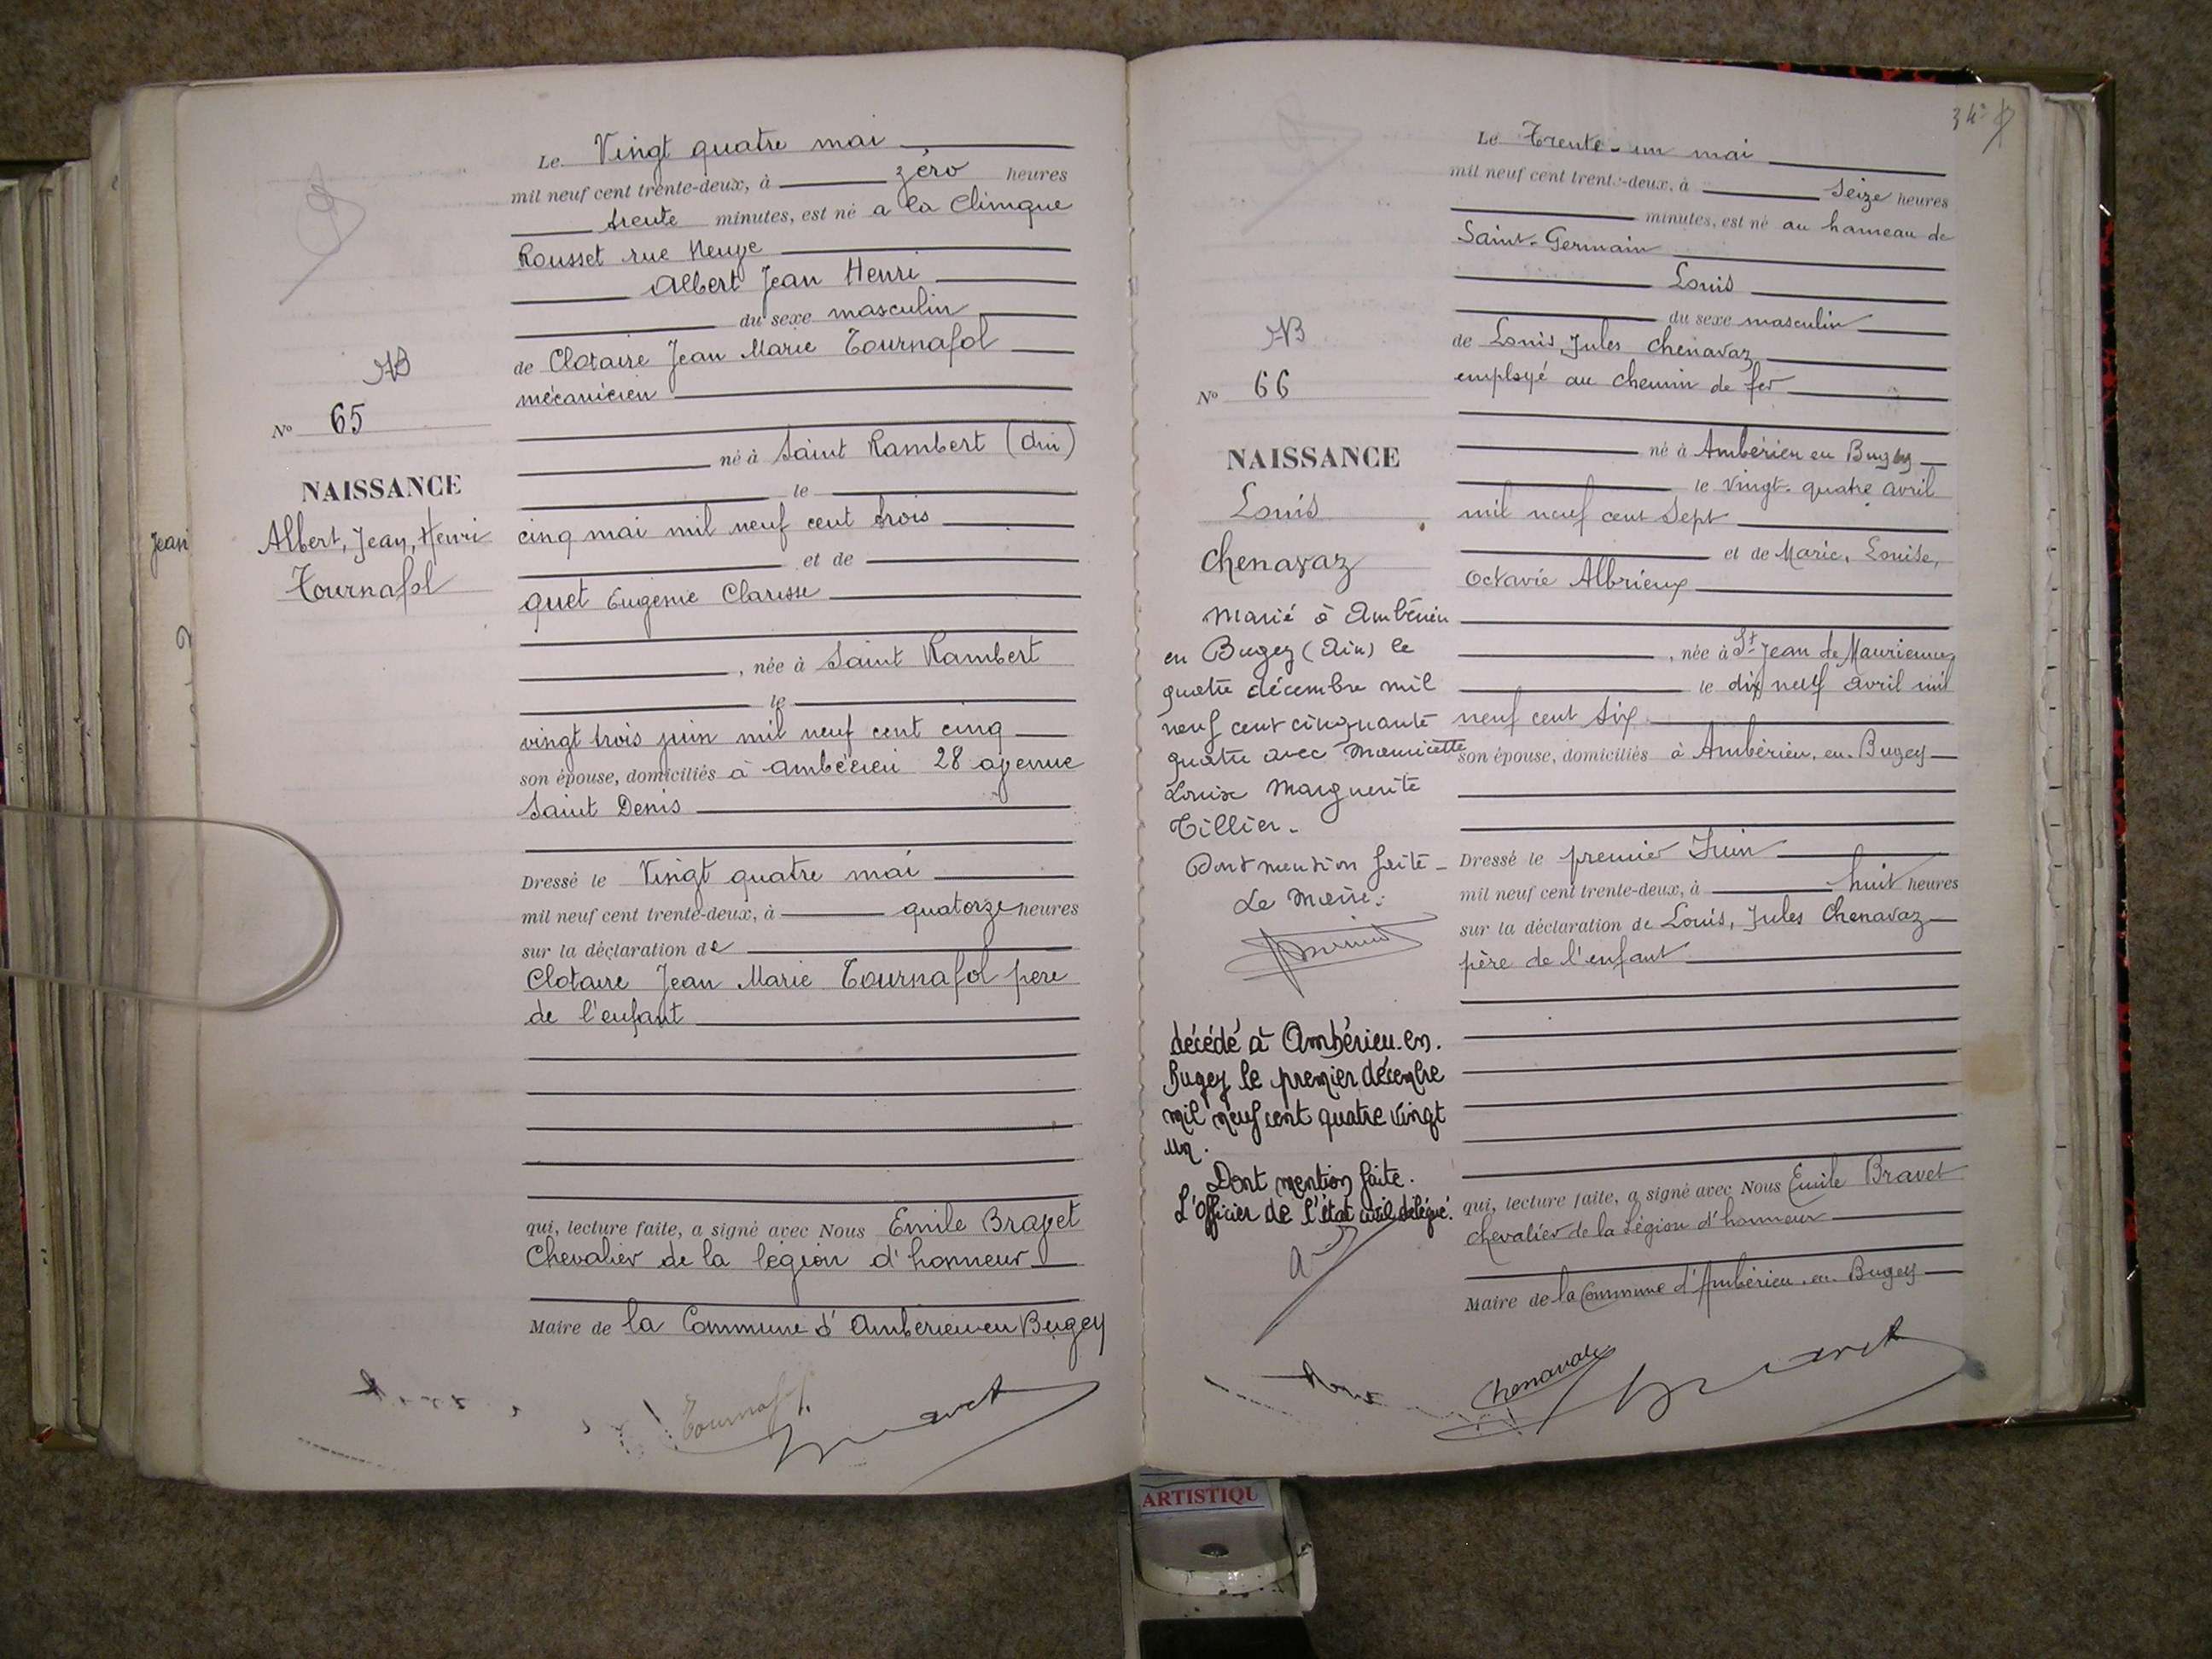 Jean
AB
N° 65
NAISSANCE
Albert, Jean, Henri
Tournafol
Le Vingt quatre mai
mil neuf cent trente-deux, à zéro heures
trente minutes, est né a la Clinique
Rousset rue Neuve
Albert Jean Henri
du sexe masculin
de Clotaire Jean Marie Tournafol
mécanicien
né à Saint Rambert (Ain)
le
cinq mai mil neuf cent trois
et de
quet Eugénie Clarisse
, née à Saint Rambert
le
vingt trois juin mil neuf cent cinq
son épouse, domiciliés à ambérieu 28 avenue
Saint Denis
Dressé le Vingt quatre mai
mil neuf cent trente-deux, à quatorze heures
sur la déclaration de
Clotaire Jean Marie Tournafol père
de l'enfant
qui, lecture faite, a signé avec Nous Emile Bravet
Chevalier de la légion d'honneur
Maire de la Commune d'Ambérieu en Bugey
Tournafol
Bravet
34
AB
N° 66
NAISSANCE
Louis
Chenavaz
Marié à Ambérieu
en Bugey (Ain) le
quatre décembre mil
neuf cent cinquante
quatre avec Mauricette
Louise Marguerite
Tillier.
Dont mention faite
Le Maire:
décédé à Ambérieu-en.
Bugey le premier décembre
mil neuf cent quatre vingt
un.
Dont mention faite.
L'Officier de l'état civil délégué.
Le Trente-un mai
mil neuf cent trente-deux, à Seize heures
minutes, est né au hameau de
Saint-Germain
Louis
du sexe masculin
de Louis, Jules Chenavaz
employé au chemin de fer
né à Ambérieu en Bugey
le vingt-quatre avril
mil neuf cent sept
et de Marie, Louise,
Octavie Albrieux
, née à St Jean de Maurienne
le dix neuf avril mil
neuf cent six
son épouse, domiciliés à Ambérieu, en Bugey
Dressé le premier Juin
mil neuf cent trente-deux, à huit heures
sur la déclaration de Louis, Jules Chenavaz
père de l'enfant
qui, lecture faite, a signé avec Nous Emile Bravet
chevalier de la Légion d'honneur
Maire de la Commune d'Ambérieu en Bugey
Chenavaz
Bravet
ARTISTIQU